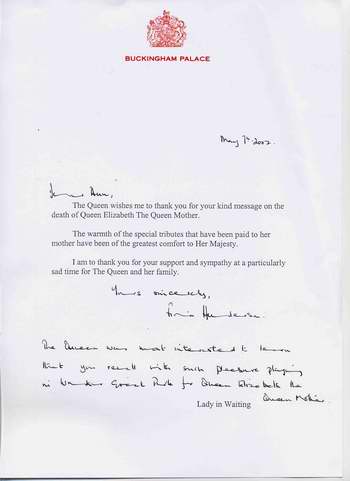 BUCKINGHAM PALACE
May 7th 2002.
Dear Ann,
The Queen wishes me to thank you for your kind message on the
death of Queen Elizabeth The Queen Mother.
The warmth of the special tributes that have been paid to her
mother have been of the greatest comfort to Her Majesty.
I am to thank you for your support and sympathy at a particularly
sad time for The Queen and her family.
Yours sincerely,
Henderson
The Queen was most interested to learn
that you recall with such pleasure playing
in Windsor Great Park for Queen Elizabeth the
Queen Mother
Lady in Waiting